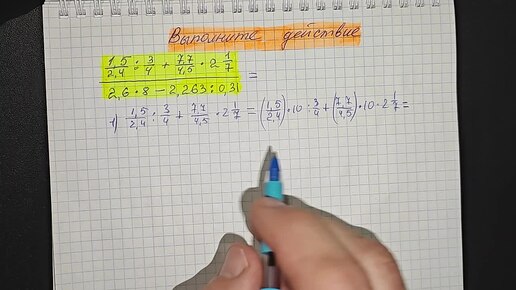 Выполните действие
(1,5/2,4 : 3/4 + 7,7/4,5 · 2 1/7) / (2,6 · 8 − 2,263 : 0,31) =
1) 1,5/2,4 : 3/4 + 7,7/4,5 · 2 1/7 = (1,5/2,4) · 10 : 3/4 + (7,7/4,5) · 10 · 2 1/7 =